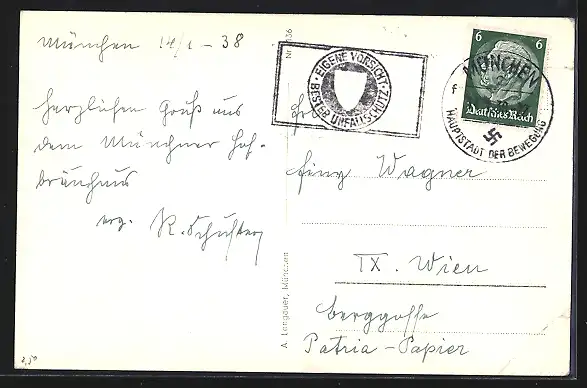 München 14/1 - 38
herzlichen Gruß aus
dem Münchner Hof-
bräuhaus
erg. K. Schuster
EIGENE VORSICHT
BESTER UNFALLSCHUTZ
6 6
Deutsches Reich
MÜNCHEN
HAUPTSTADT DER BEWEGUNG
Wagner
IX. Wien
berggasse
Patria-Papier
A. Lengauer, München